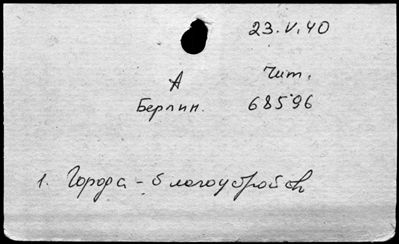 23.V.40
А Чит.
Берлин. 68596
1. Города - благоустройств